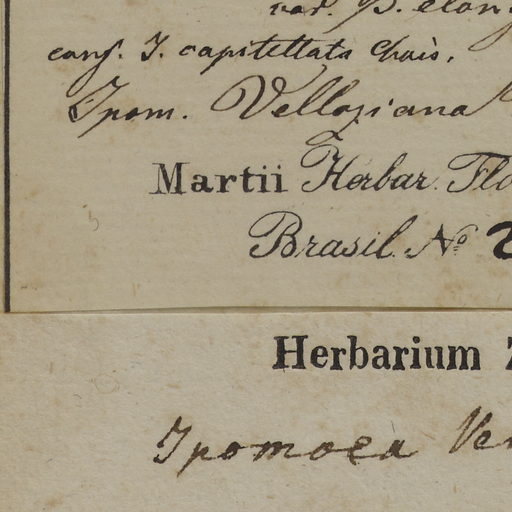 var. β. elon
conf. I. capitellata Chois.
Ipom. Velloziana
Martii Herbar. Flo
Brasil. No 2
Herbarium Z
Ipomoea Ve